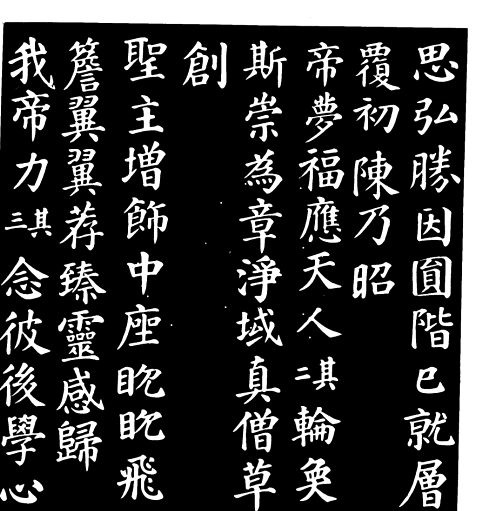 思弘勝因圓階已就層
覆初陳乃昭
帝夢福應天人其二輪奐
斯崇為章淨域真僧草
創
聖主增飾中座眈眈飛
簷翼翼荐臻靈感歸
我帝力其三念彼後學心